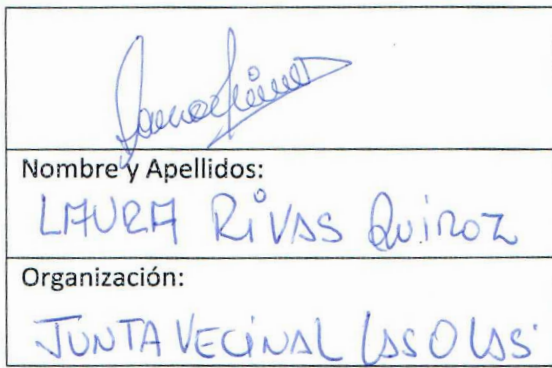 Nombre y Apellidos:
LAURA RiVAS QuiROZ
Organización:
JUNTA VECINAL LAS OLAS